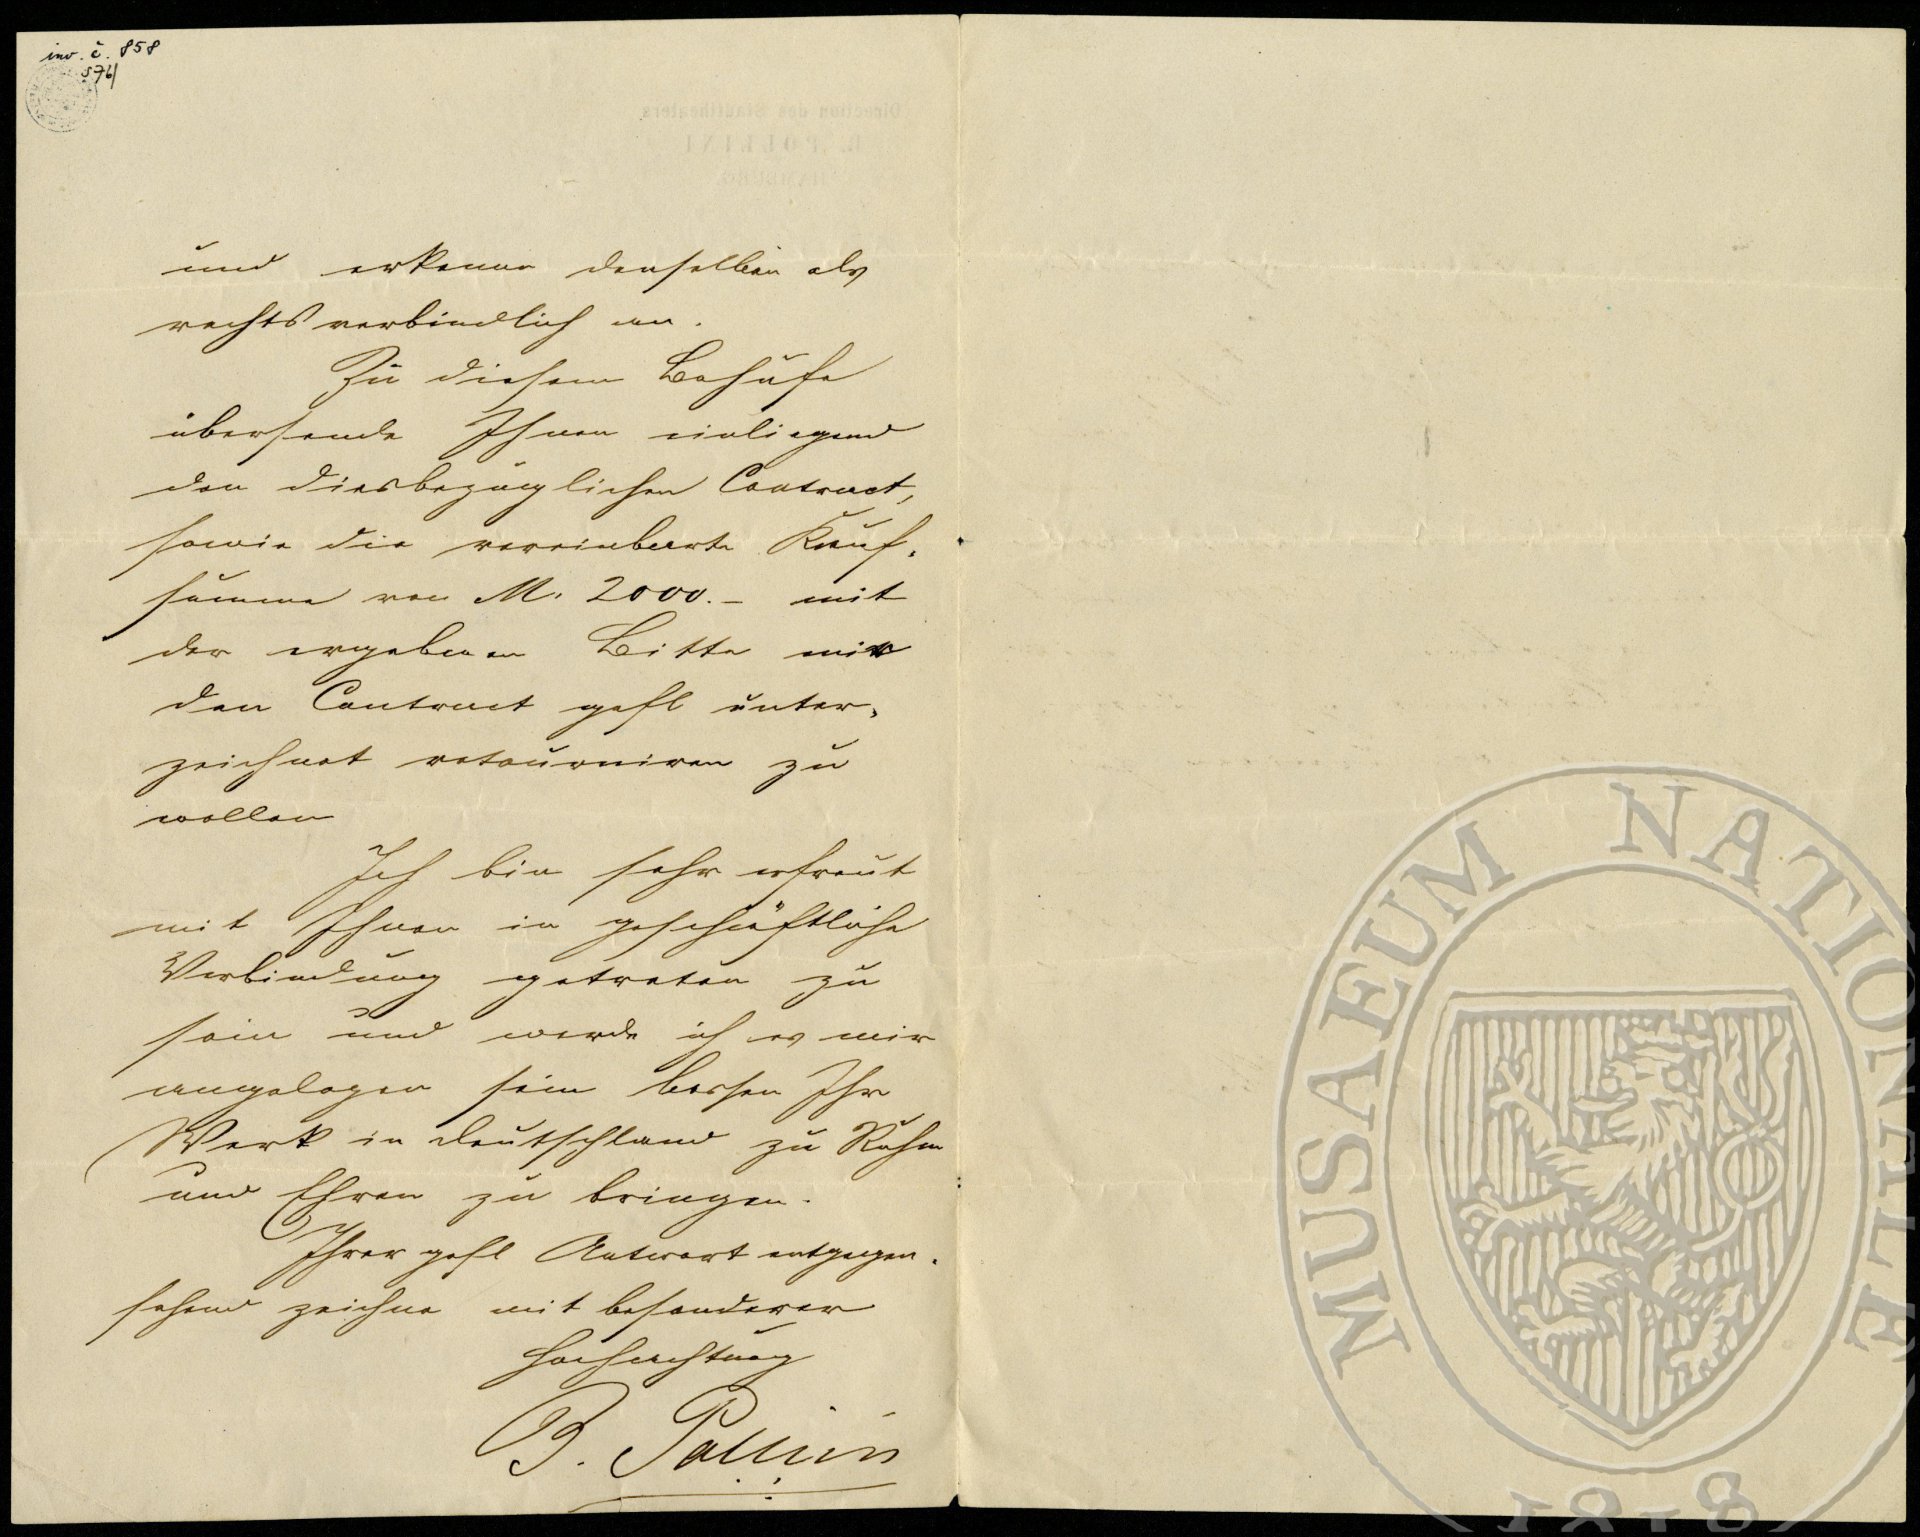 inv. č. 858
576/
Direction des Stadttheaters
B. POLLINI
HAMBURG.
und erkenne denselben als
rechtsverbindlich an.
Zu diesem Behufe
übersende Ihnen einliegend
den diesbezüglichen Contract,
sowie die vereinbarte Kauf-
summe von M. 2000.– mit
der ergebenen Bitte mir
den Contract gefl unter-
zeichnet retourniren zu
wollen
Ich bin sehr erfreut
mit Ihnen in geschäftliche
Verbindung getreten zu
sein und werde ich es mir
angelegen sein lassen Ihr
Werk in Deutschland zu Ruhm
und Ehren zu bringen.
Ihrer gefl Antwort entgegen-
sehend zeichne mit besonderer
Hochachtung
B. Pollini
MUSAEUM NATIONALE
1818